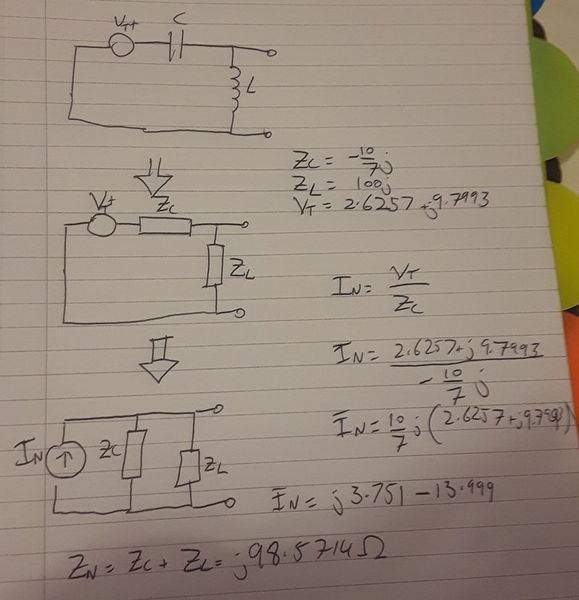 VT+ C
L
Zc = -10/7 j
ZL = 100j
VT = 2.6257 + j9.7993
V+ Zc
ZL
IN = VT / Zc
IN = 2.6257 + j9.7993 / -10/7 j
IN = 10/7 j (2.6257 + j9.799)
IN Zc ZL
IN = j3.751 - 13.999
ZN = Zc + ZL = j98.5714Ω